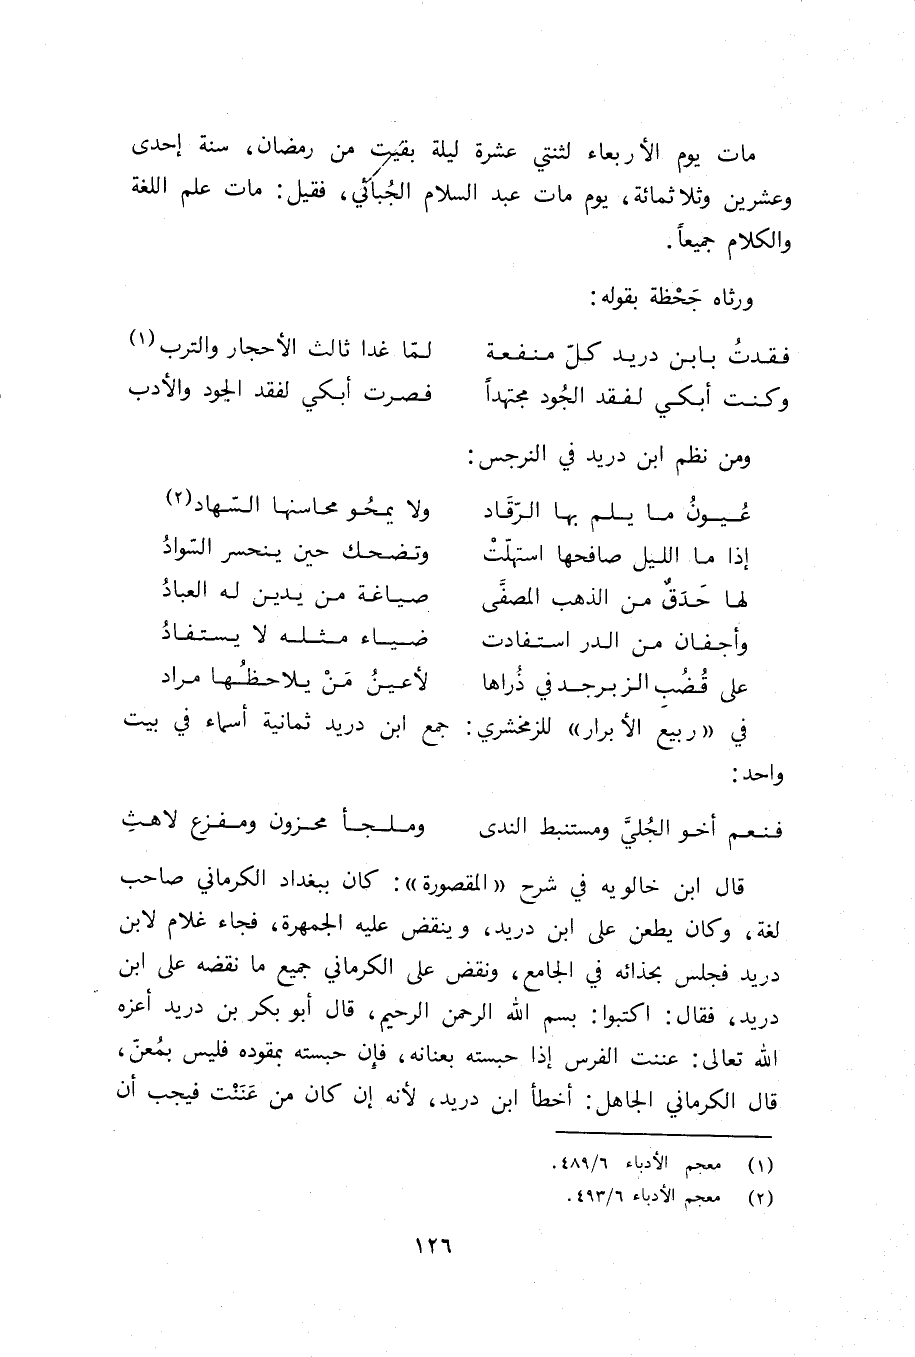 مات يوم الأربعاء لثنتي عشرة ليلة بقيت من رمضان، سنة إحدى
وعشرين وثلاثمائة، يوم مات عبد السلام الجُبائي، فقيل: مات علم اللغة
والكلام جميعاً.
ورثاه جَحْظة بقوله:
فقدتُ بابن دريد كلّ منفعة لمّا غدا ثالث الأحجار والترب(١)
وكنت أبكي لفقد الجُود مجتهداً فصرت أبكي لفقد الجود والأدب
ومن نظم ابن دريد في النرجس:
عُيونُ ما يلم بها الرّقَاد ولا يمحُو محاسنها السّهاد(٢)
إذا ما الليل صافحها استهلّتْ وتضحك حين ينحسر السّوادُ
لها حَدَقٌ من الذهب المصفَّى صياغة من يدين له العبادُ
وأجفان من الدر استفادت ضياء مثله لا يستفادُ
على قُضُبِ الزبرجد في ذُراها لأعينُ مَنْ يلاحظُها مراد
في «ربيع الأبرار» للزمخشري: جمع ابن دريد ثمانية أسماء في بيت
واحد:
فنعم أخو الجُليَّ ومستنبط الندى وملجأ محزون ومفزع لاهثِ
قال ابن خالويه في شرح «المقصورة»: كان ببغداد الكرماني صاحب
لغة، وكان يطعن على ابن دريد، وينقض عليه الجمهرة، فجاء غلام لابن
دريد فجلس بحذائه في الجامع، ونقض على الكرماني جميع ما نقضه على ابن
دريد، فقال: اكتبوا: بسم الله الرحمن الرحيم، قال أبو بكر بن دريد أعزه
الله تعالى: عننت الفرس إذا حبسته بعنانه، فإن حبسته بمقوده فليس بمُعنّ،
قال الكرماني الجاهل: أخطأ ابن دريد، لأنه إن كان من عَنَنْت فيجب أن
(١) معجم الأدباء ٤٨٩/٦.
(٢) معجم الأدباء ٤٩٣/٦.
١٢٦